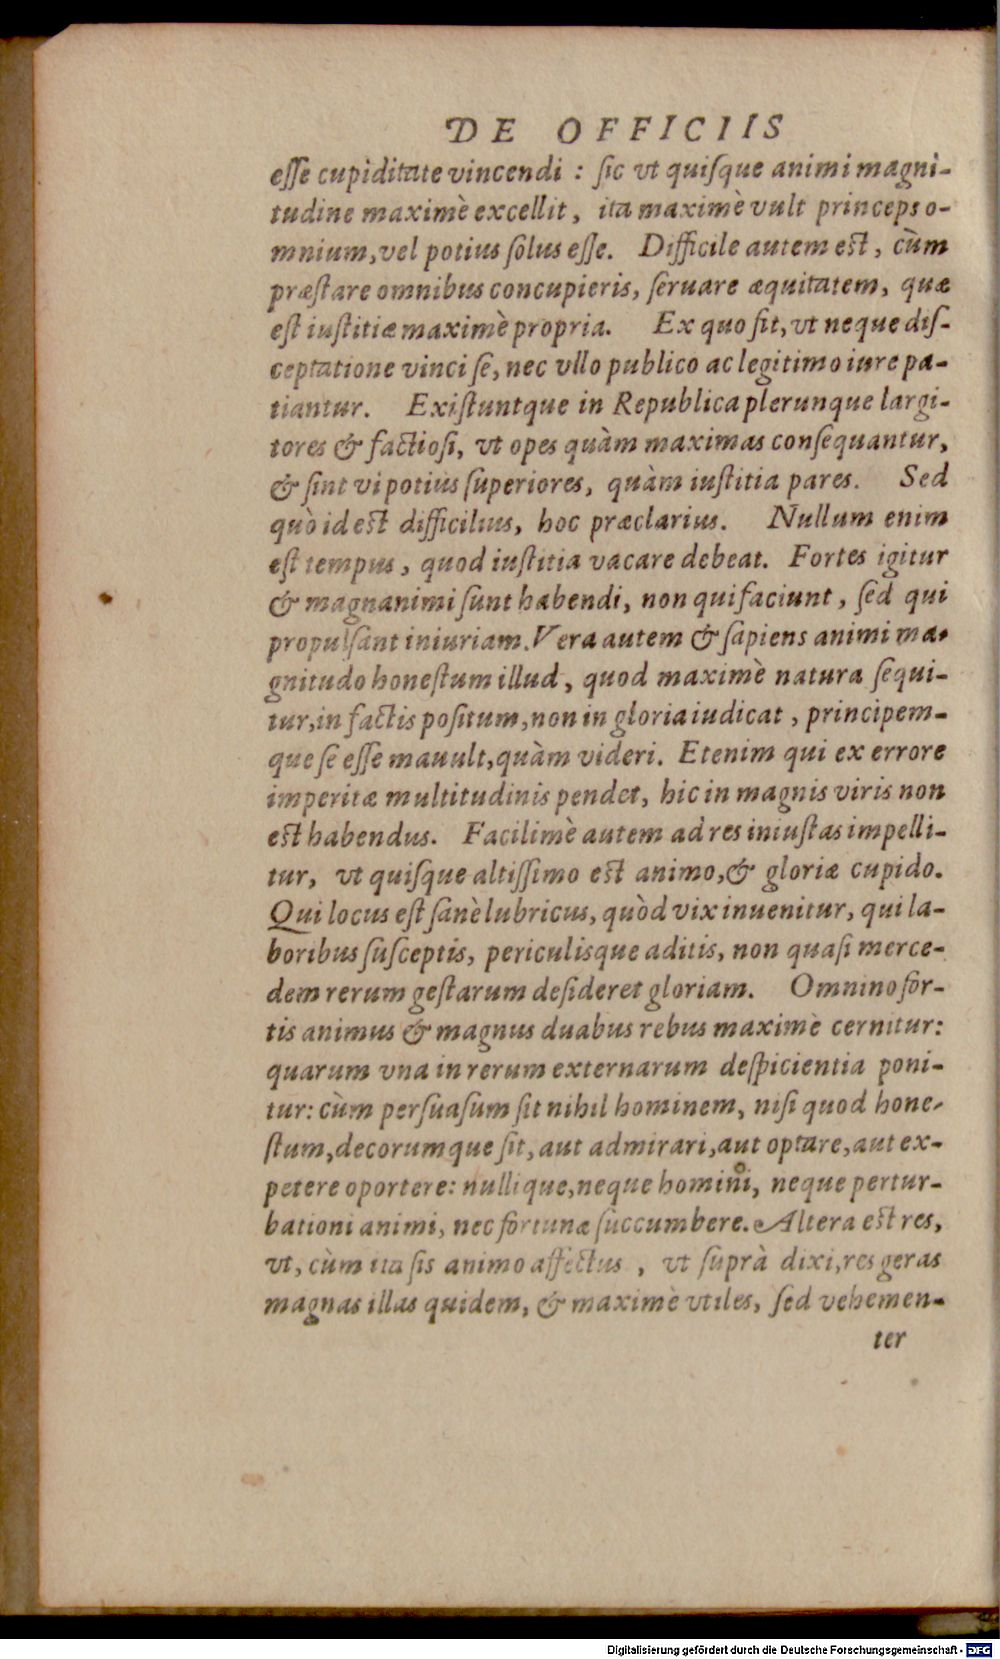 DE OFFICIIS
eſſe cupiditate vincendi : ſic vt quiſque animi magni-
tudine maximè excellit, ita maximè vult princeps o-
mnium, vel potius ſolus eſſe. Difficile autem eſt, cùm
præſtare omnibus concupieris, ſeruare æquitatem, quæ
eſt iuſtitiæ maximè propria. Ex quo fit, vt neque diſ-
ceptatione vinci ſe, nec vllo publico ac legitimo iure pa-
tiantur. Exiſtuntque in Republica plerunque largi-
tores & factioſi, vt opes quàm maximas conſequantur,
& ſint vi potius ſuperiores, quàm iuſtitia pares. Sed
quò id eſt difficilius, hoc præclarius. Nullum enim
eſt tempus, quod iuſtitia vacare debeat. Fortes igitur
& magnanimi ſunt habendi, non qui faciunt, ſed qui
propulſant iniuriam. Vera autem & ſapiens animi ma-
gnitudo honeſtum illud, quod maximè natura ſequi-
tur, in factis poſitum, non in gloria iudicat, principem-
que ſe eſſe mauult, quàm videri. Etenim qui ex errore
imperitæ multitudinis pendet, hic in magnis viris non
eſt habendus. Facilimè autem ad res iniuſtas impelli-
tur, vt quiſque altiſſimo eſt animo, & gloriæ cupido.
Qui locus eſt ſanè lubricus, quòd vix inuenitur, qui la-
boribus ſuſceptis, periculisque aditis, non quaſi merce-
dem rerum geſtarum deſideret gloriam. Omnino for-
tis animus & magnus duabus rebus maximè cernitur:
quarum vna in rerum externarum deſpicientia poni-
tur: cùm perſuaſum ſit nihil hominem, niſi quod hone-
ſtum, decorumque ſit, aut admirari, aut optare, aut ex-
petere oportere: nullique, neque homini, neque pertur-
bationi animi, nec fortunæ ſuccumbere. Altera eſt res,
vt, cùm ita ſis animo affectus, vt ſuprà dixi, res geras
magnas illas quidem, & maximè vtiles, ſed vehemen-
ter
Digitalisierung gefördert durch die Deutsche Forschungsgemeinschaft - DFG